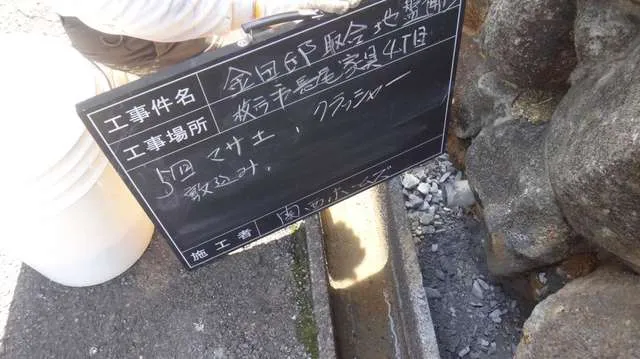 工事件名 金田邸取合地盤補
工事場所 枚方市長尾家具4丁目
5回 マサ土、クラッシャー
敷込み、
施工者 関西ホームズ